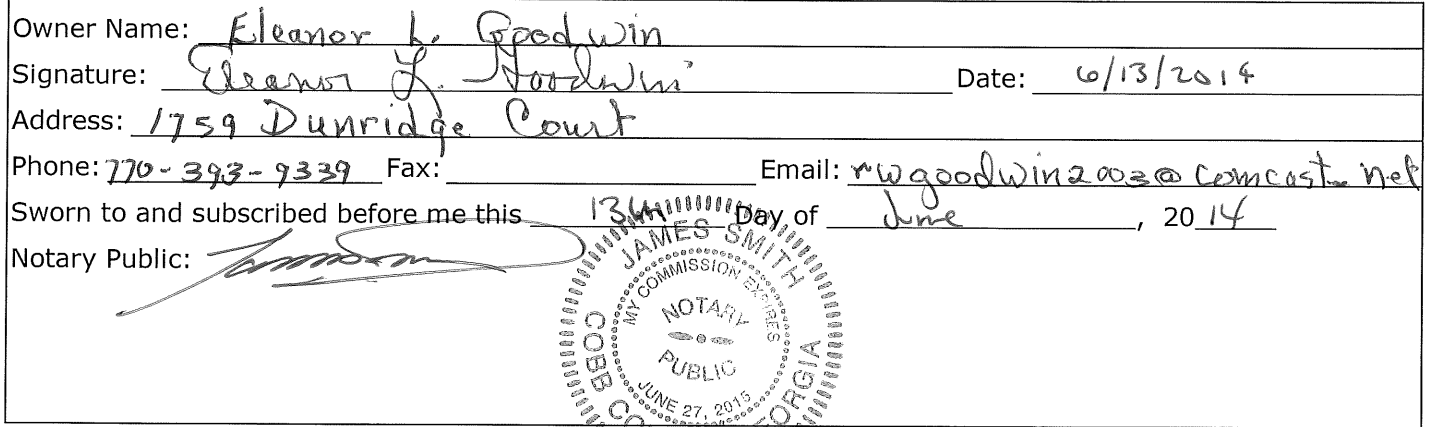 Owner Name: Eleanor L. Goodwin
Signature: Eleanor L. Goodwin
Date: 6/13/2014
Address: 1759 Dunridge Court
Phone: 770-393-9339 Fax: Email: rwgoodwin2003@comcast.net
Sworn to and subscribed before me this 13th Day of June, 2014
Notary Public:
JAMES SMITH
MY COMMISSION EXPIRES
NOTARY
PUBLIC
JUNE 27, 2015
COBB